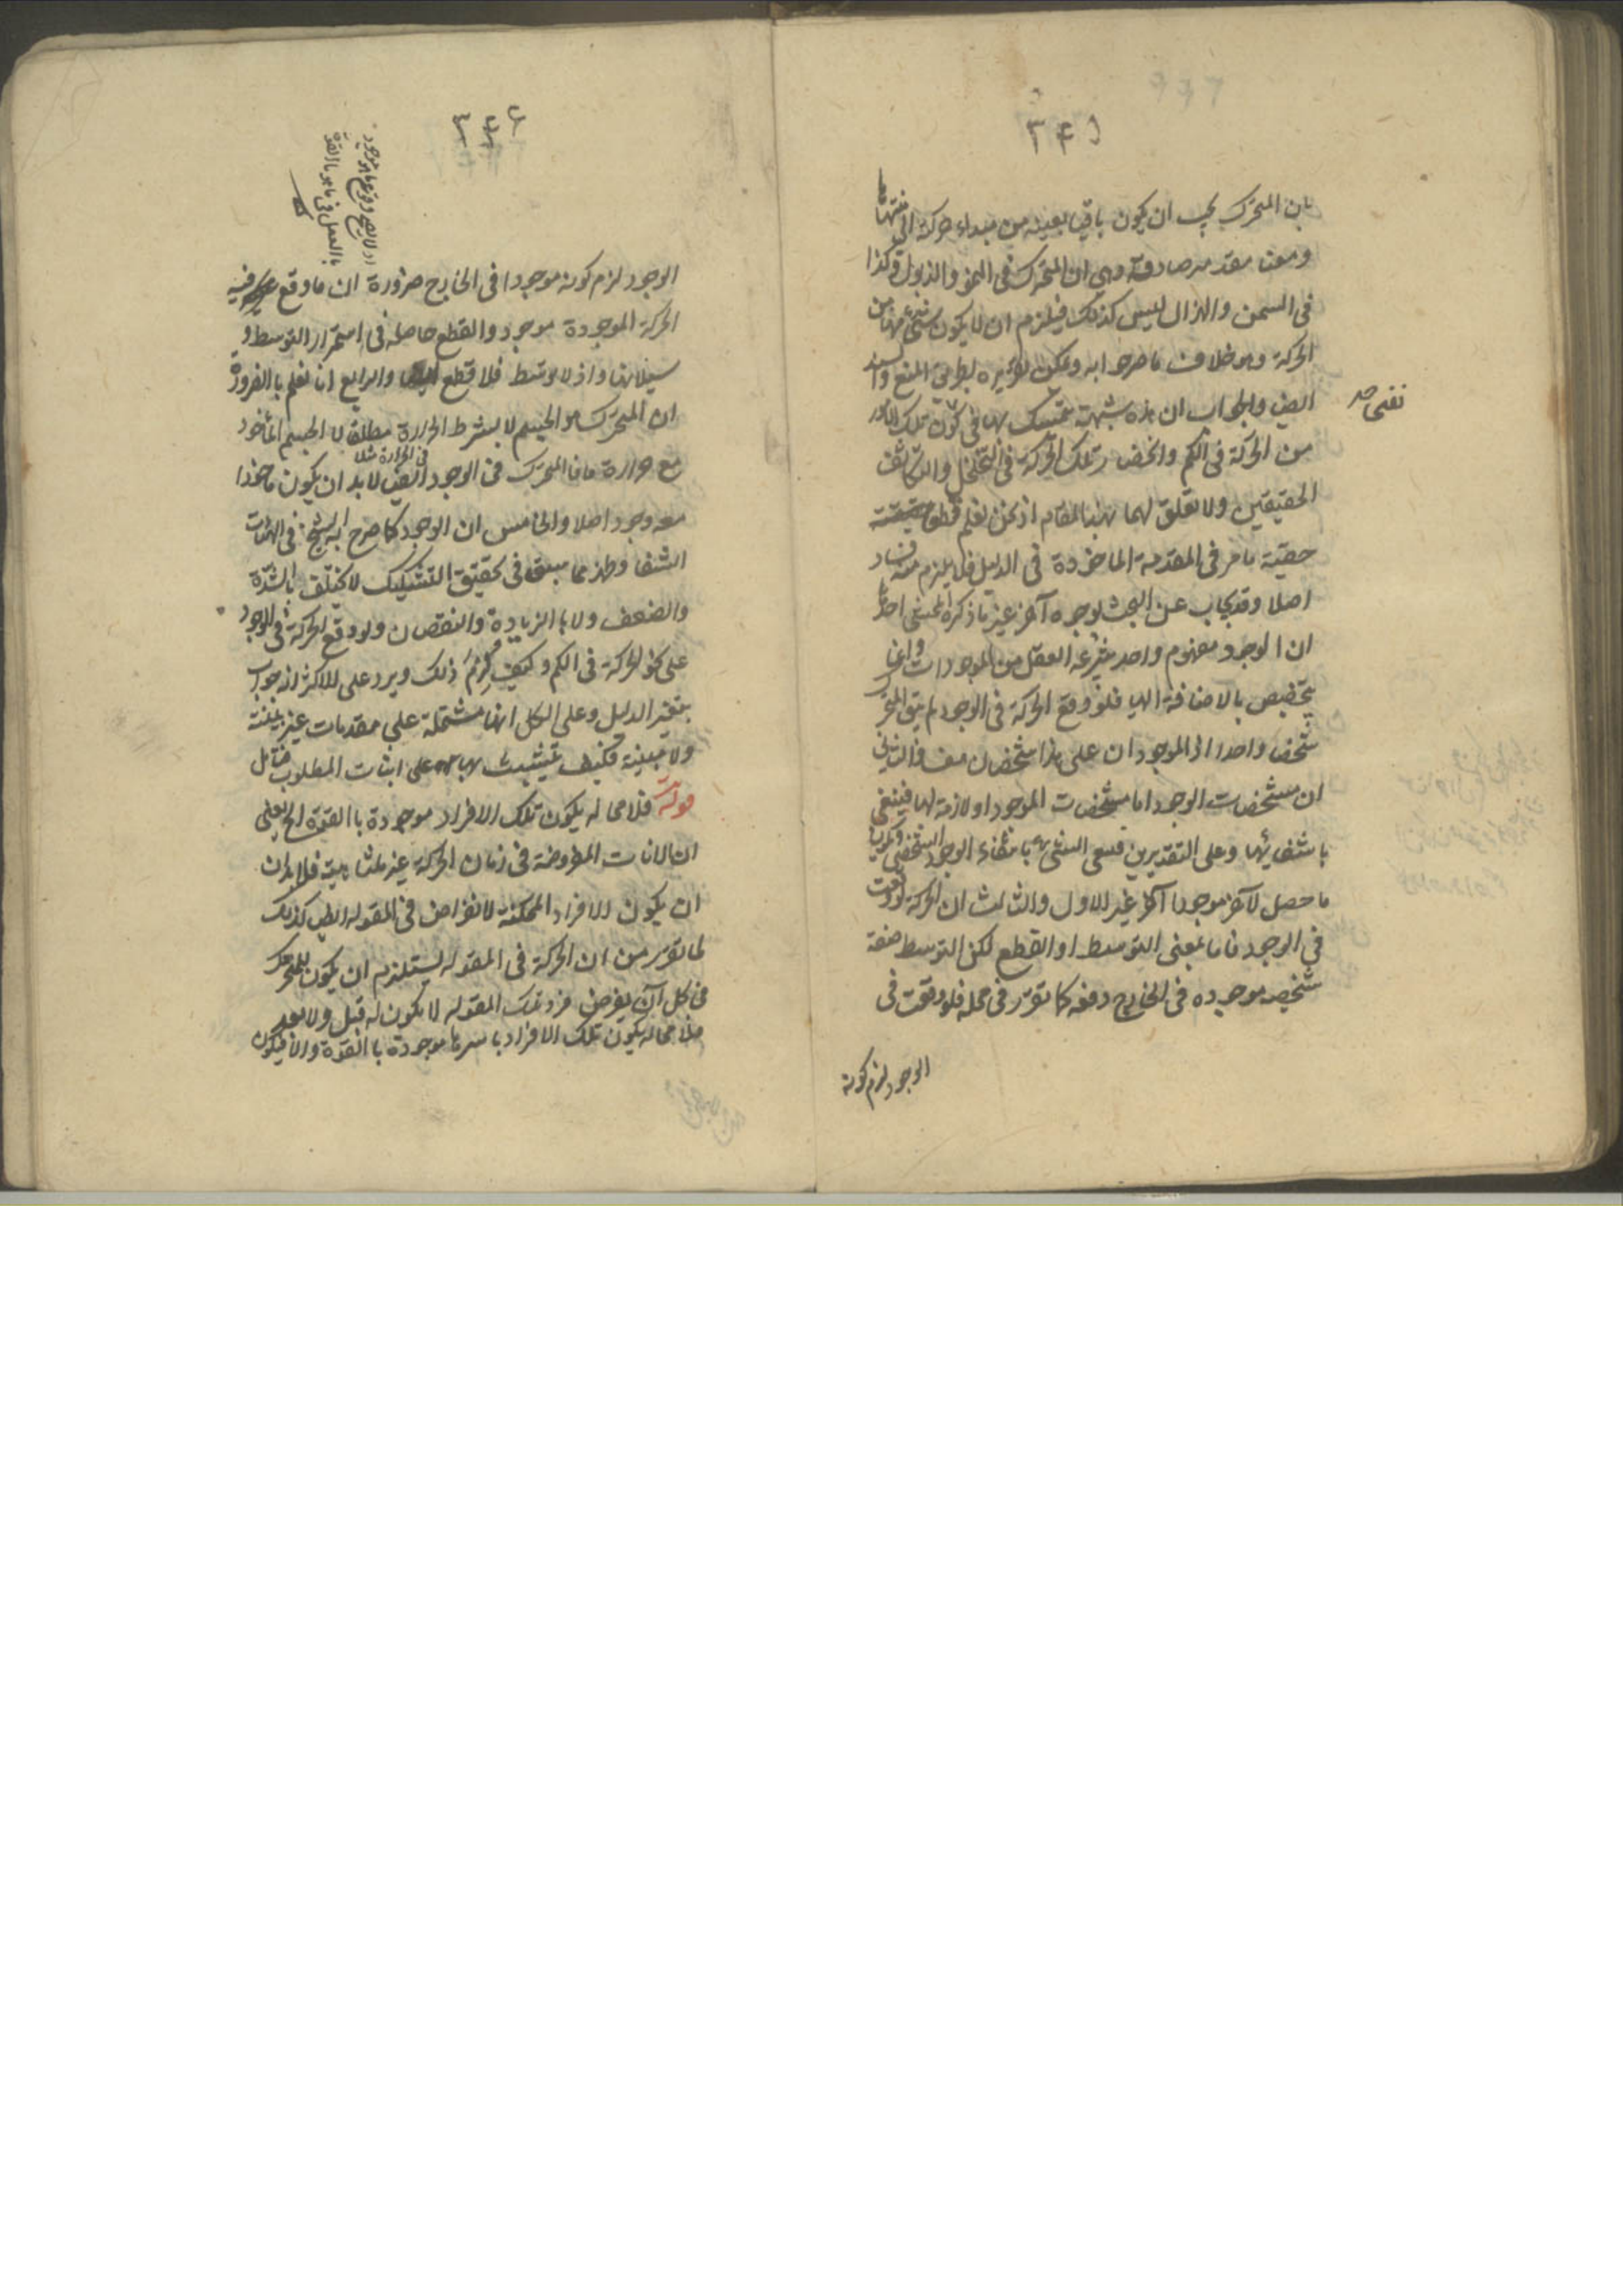 ٢٤٥
بان المتحرك يجب ان يكون باقيا بعينه من مبداء حركة الى منتهاها
ومعنا مقدمة صادقة وهي ان المتحرك في النمو والذبول وكذا
في السمن والهزال ليس كذلك فيلزم ان لا يكون شيء منها من
الحركة وهو خلاف ما صرحوا به ويمكن تقريره بطريق المنع والسند
ايضا والجواب ان هذه شبهة يتمسك بها في كون تلك الامور
من الحركة في الكم وانحصار تلك الحركة في التخلخل والتكاثف
الحقيقين ولا تعلق لهما بهذا المقام اذ نحن نعلم قطعا حقيقة
حقية ما مر في المقدمة الماخوذة في الدليل فلا يلزم منه فساد
اصلا وقد يجاب عن البحث بوجوه آخر غير ما ذكره المحشى احدها
ان الوجود مفهوم واحد ينتزعه العقل من الموجودات وانما
يتخصص بالاضافة اليها فلو وقع الحركة في الوجود لم يبق المتحرك
شخصا واحدا اذ الموجودان على هذا شخصان والثاني
ان مشخصات الوجود اما مشخصات الموجود او لازمة لها فينتفى
بانتفائها وعلى التقديرين بانتفاء الوجود الشخصي
ما حصل لآخر موجودا آخر غير الاول والثالث ان الحركة لو وقعت
في الوجود فاما بمعنى التوسط او القطع لكن التوسط صفة
شخصية موجودة في الخارج دفعة كما تقرر في محله فلو وقعت في
الوجود لزم كونه
٢٤٦
اذ لا يصح وقوع ما هو موجود
بالفعل في ما هو بالقوة
الوجود لزم كونه موجودا في الخارج ضرورة ان ما وقع فيه
الحركة الموجودة موجود والقطع حاصلة في استمرار التوسط و
سيلانها واذ لا توسط فلا قطع ايضا والرابع انا نعلم با الضرورة
ان المتحرك هو الجسم لا بشرط الحرارة مطلقا لا الجسم المأخوذ
في الحرارة مثلا
مع حرارة ما فالمتحرك في الوجود ايضا لا بد ان يكون ماخوذا
معه وجود اصلا والخامس ان الوجود كما صرح به الشيخ في الهيات
الشفا وظهر مما سبق في تحقيق التشكيك لا يختلف بالشدة
والضعف ولا با الزيادة والنقصان ولو وقع الحركة في الوجود
على نحو الحركة في الكم وكيف لزم ذلك ويرد على الاكثر انه جواب
بتغير الدليل وعلى الكل انها مشتملة على مقدمات غير بينة
ولا مبينة فكيف يتشبث بها على اثبات المطلوب فتأمل
قوله فلا محاله يكون تلك الافراد موجودة با القوة الخ يعنى
ان الانات المفروضة في زمان الحركة غير متناهية فلا بد ان
ان يكون الافراد الممكنة الانفراض في المقولة ايضا كذلك
لما تقرر من ان الحركة في المقوله يستلزم ان يكون للمتحرك
في كل آن يفرض فرد من تلك المقوله لا يكون له قبل ولا بعد
فلا محاله يكون تلك الافراد باسرها موجودة با القوة والا فيكون